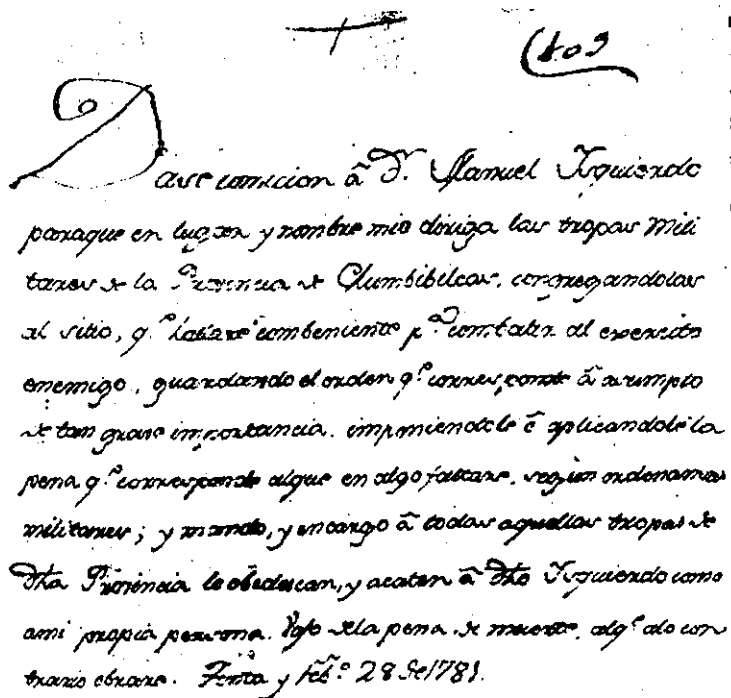 409
Dase comicion â Dⁿ. Manuel Ysquierdo
paraque en lugar y nombre mio diriga las tropas Mili
tares de la Provincia de Chumbibilcas, congregandolas
al sitio, q.ᵉ hallare combeniente p.ᵃ combatir al exercito
enemigo, guardando el orden q.ᵉ corresponde â asumpto
de tan grave importancia, imponiendole ê aplicandole la
pena q.ᵉ corresponde alque en algo faltare, segun ordenansas
militares; y mando, y encargo â todas aquellas tropas de
dha Provincia le obedescan, y acaten â dho Ysquierdo como
ami propia persona. Vajo dela pena de muerte, alq.ᵉ alo con
trario obrare. Tinta y feb.º 28 de 1781.